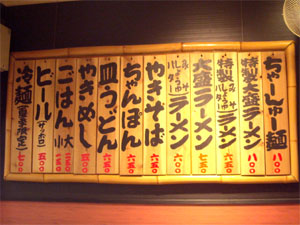 ちゃーしゅー麺 八〇〇
特製大盛ラーメン 八〇〇
特製ラーメン 六五〇
大盛ラーメン 七五〇
ラーメン 六〇〇
やきそば 六五〇
ちゃんぽん 六五〇
皿うどん 六五〇
やきめし 五〇〇
ごはん 大 小
ビール(サッポロ) 五〇〇
冷麺(夏季限定) 七〇〇